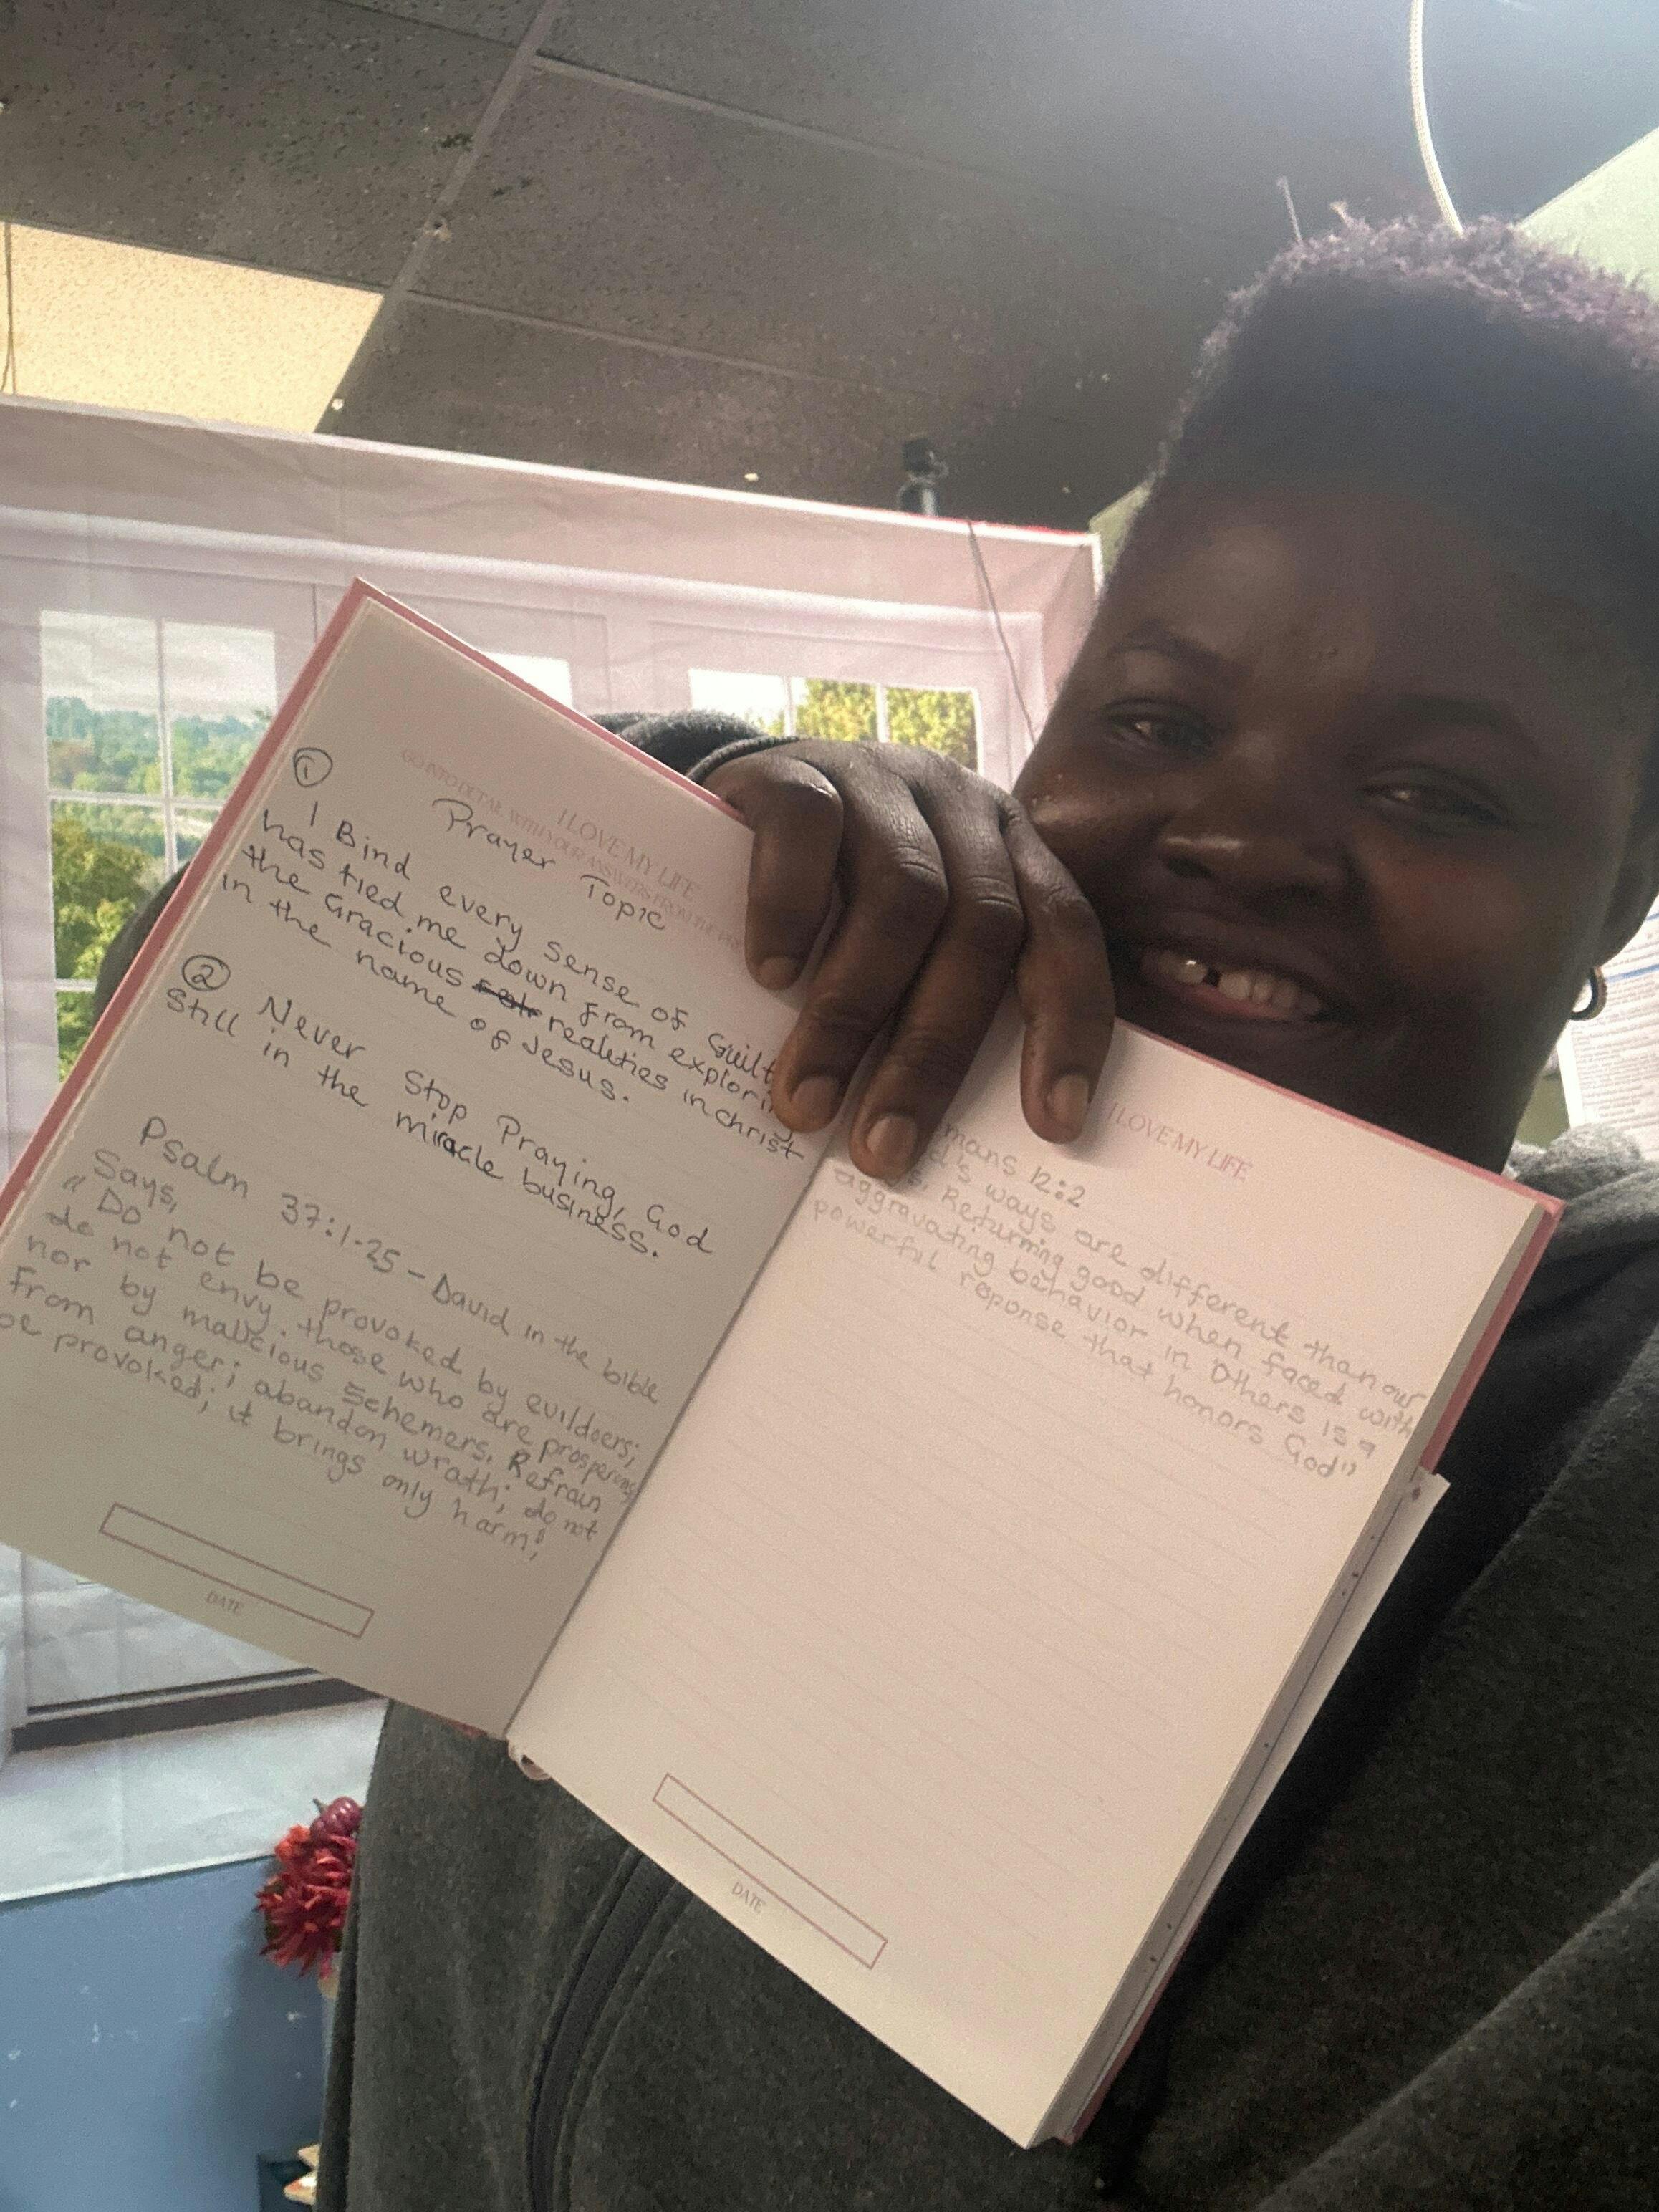 I LOVE MY LIFE
GO INTO DETAIL WITH YOUR ANSWERS FROM THE
Prayer Topic
①
I Bind every sense of Guilt
has tied me down from explorin
the Gracious realities in christ
in the name of Jesus.
② Never Stop Praying, God
Still in the miracle business.
Psalm 37:1-25 - David in the bible
Says,
" Do not be provoked by evildoers;
do not envy those who are prosperous
nor by malicious Schemers. Refrain
From anger; abandon wrath; do not
be provoked; it brings only harm!
DATE
I LOVE MY LIFE
mans 12:2
d's ways are different than our
s. Returning good when faced with
aggravating behavior in Others is a
powerful reponse that honors God"
DATE